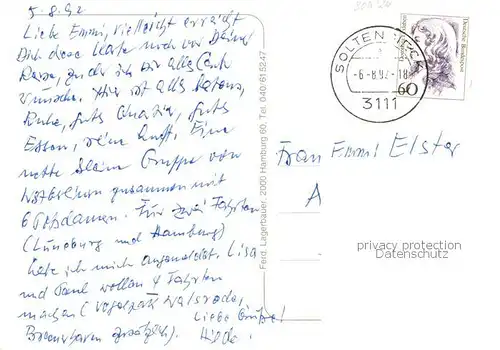 5.8.92
Liebe Emmi, vielleicht erreicht
Dich diese Karte noch vor Deiner
Reise, zu der ich Dir alles Gute
wünsche. Hier ist alles
Ruhe, gutes Quartier, gutes
Essen, reine Luft. Eine
nette kleine Gruppe von
zusammen mit
6 Potsdamern. Für zwei Fahrten
(Lüneburg und Hamburg)
habe ich mich angemeldet. Lisa
und Paul wollen 4 Fahrten
machen (Vogelpark Walsrode,
Bremerhaven zusätzlich).
Liebe Grüße!
Hilde.
Ferd. Lagerbauer, 2000 Hamburg 60, Tel. 040/615247
SOLTENDIECK
-6.-8.92-18
3111
Deutsche Bundespost
60
Frau Emmi Elster
A
privacy protection
Datenschutz